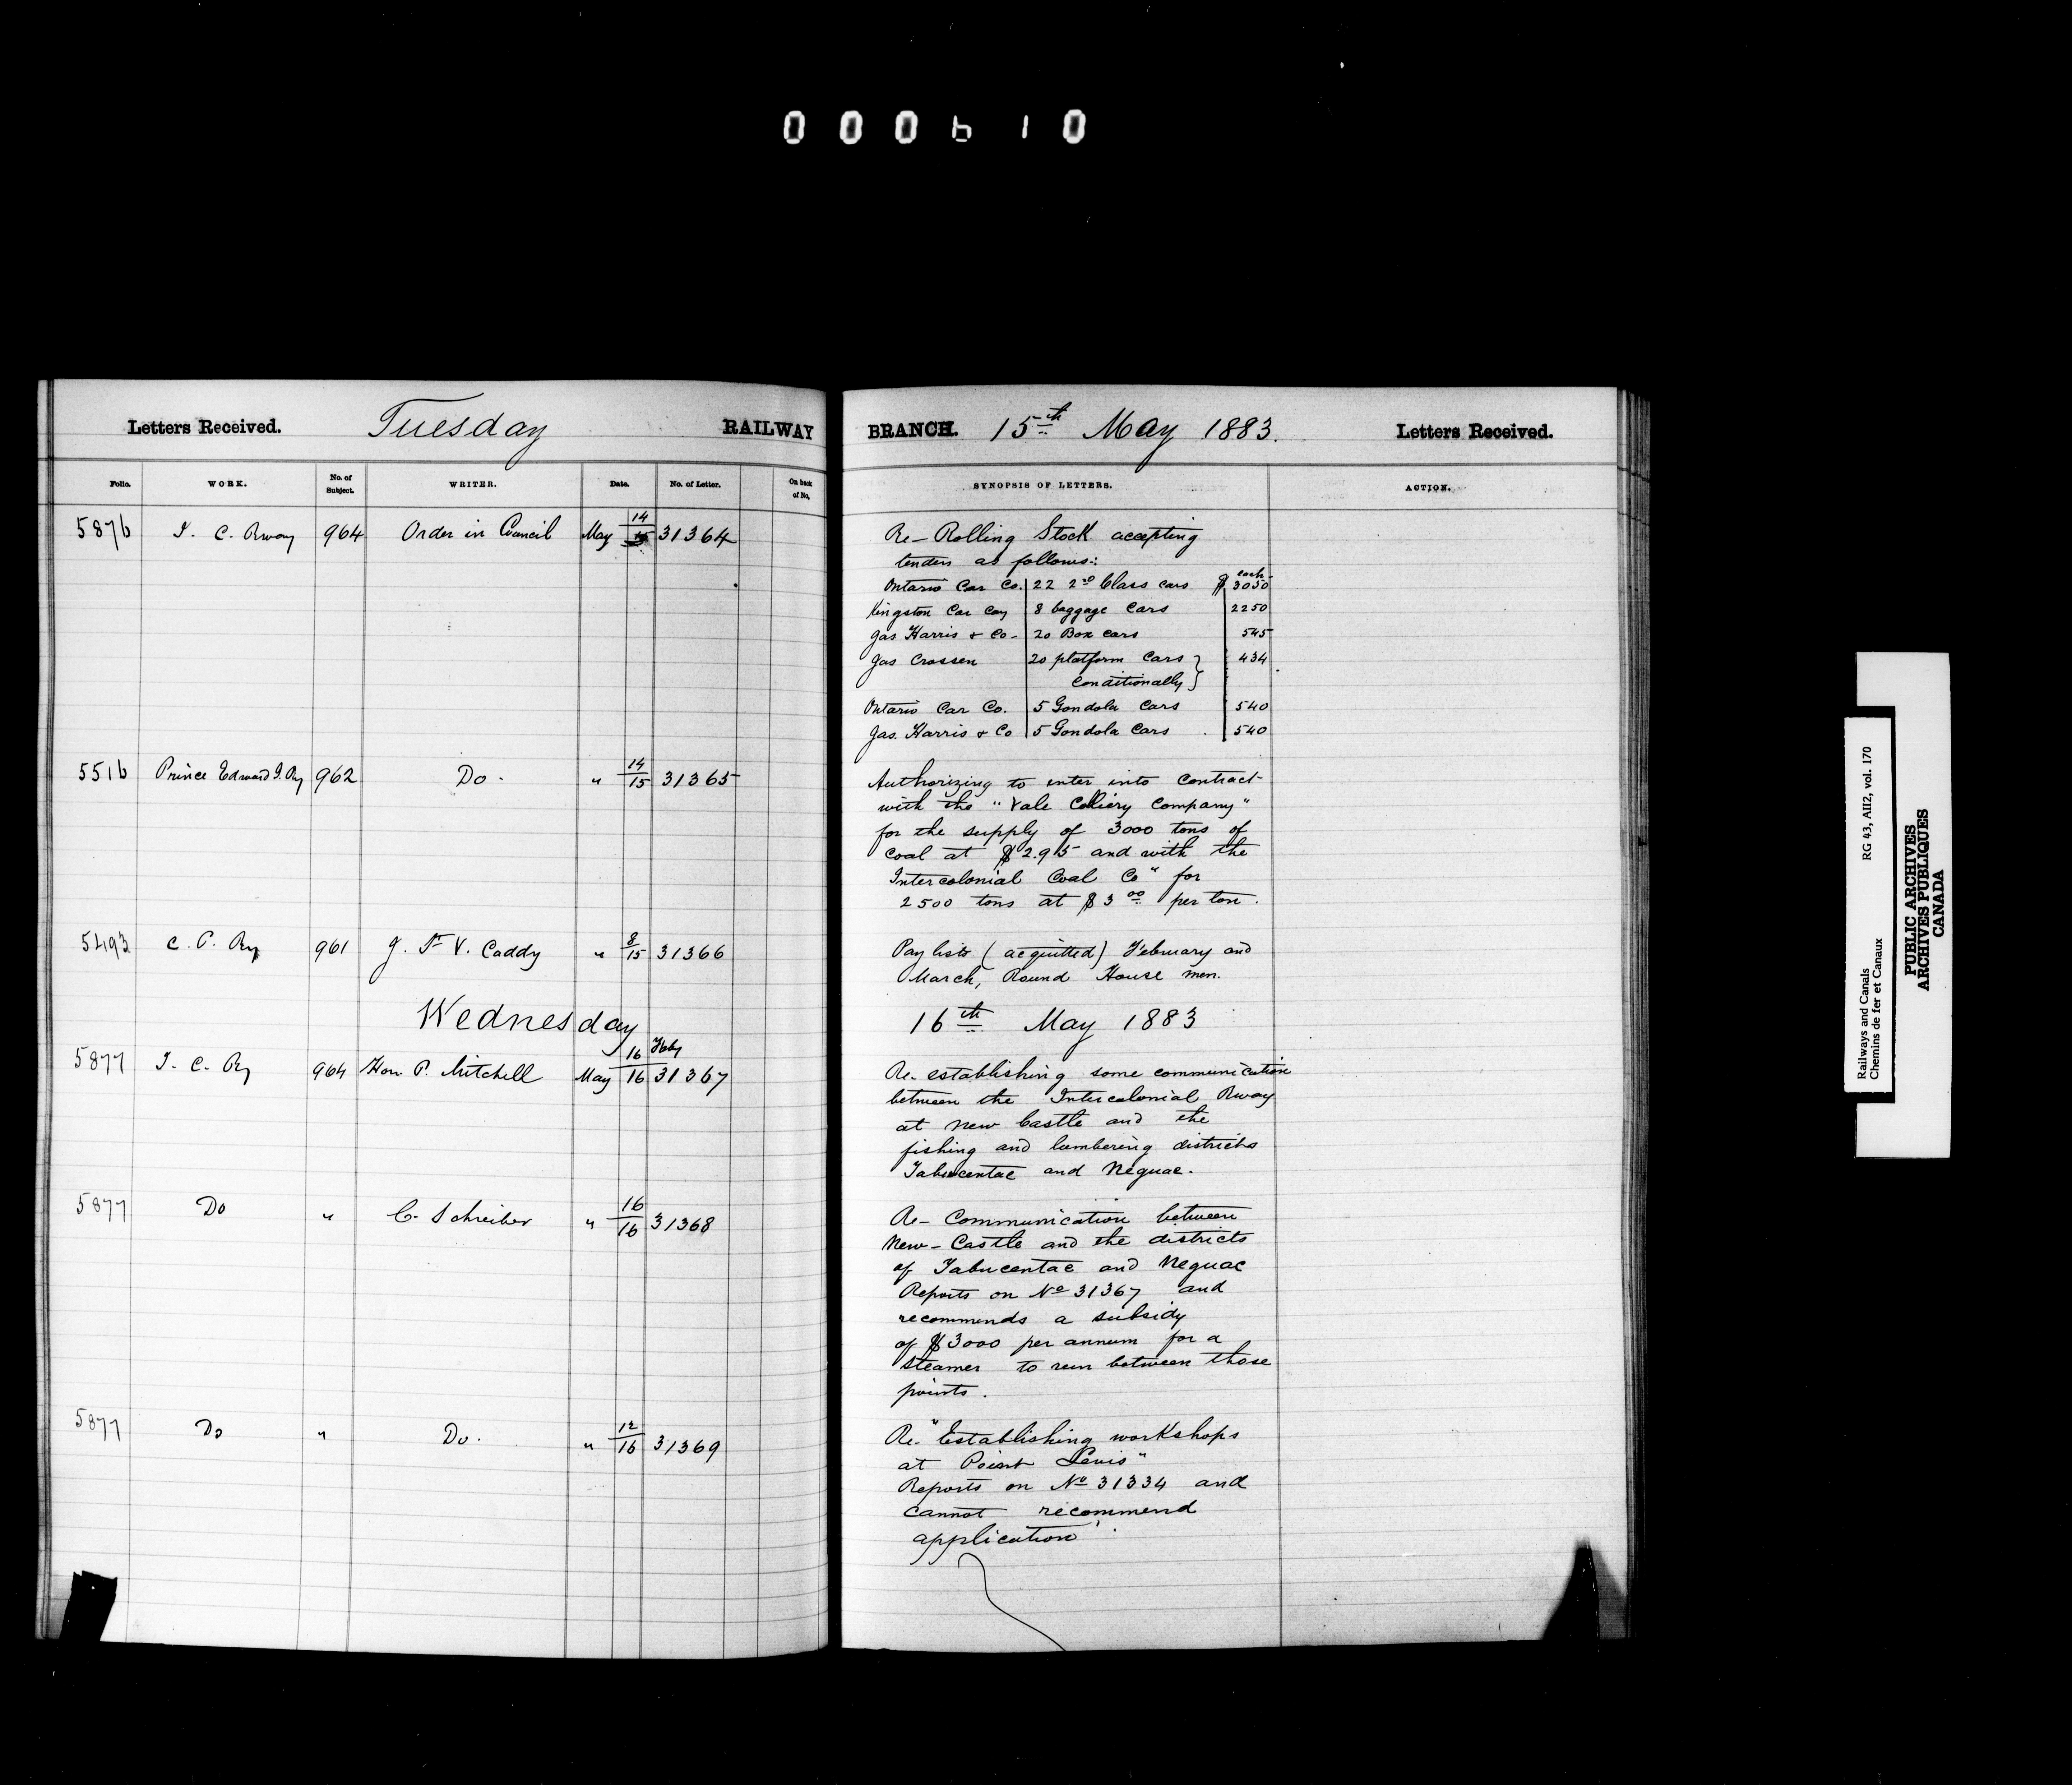 000610
Letters Received. Tuesday RAILWAY BRANCH. 15th May 1883. Letters Received.
Folio. WORK. No. of Subject. WRITER. Date. No. of Letter. On back of No. SYNOPSIS OF LETTERS. ACTION.
5876 I. C. Rway 964 Order in Council May 14/15 31364 Re- Rolling Stock accepting
tenders as follows:
Ontario Car Co. 22 2nd Class cars $ 3050 each
Kingston Car Coy 8 baggage Cars 2250
Jas Harris & Co- 20 Box cars 545
Jas Crossen 20 platform Cars 434
Conditionally
Ontario Car Co. 5 Gondola Cars 540
Jas. Harris & Co 5 Gondola Cars 540
5516 Prince Edward I. Ry 962 Do. " 14/15 31365 Authorizing to enter into Contract
with the "Vale Colliery Company"
for the supply of 3000 tons of
Coal at $2.95 and with the
Intercolonial Coal Co" for
2500 tons at $3 00 per ton.
5493 C. P. Ry 961 J. F V. Caddy " 8/15 31366 Pay lists (acquitted) February and
March, Round House men.
Wednesday 16th May 1883
5877 I. C. Ry 964 Hon P. Mitchell May 16/16 31367 Re- establishing some communication
between the Intercolonial Rway
at New Castle and the
fishing and lumbering districts
Tabucentac and Neguac.
5877 Do " C- Schreiber " 16/16 31368 Re- Communication between
New-Castle and the districts
of Tabucentac and Neguac
Reports on No 31367 and
recommends a subsidy
of $3000 per annum for a
Steamer to run between those
points.
5877 Do " Do. " 12/16 31369 Re- "Establishing workshops
at Point Levis"
Reports on No 31334 and
Cannot recommend
application
Railways and Canals RG 43, AII2, vol. 170
Chemins de fer et Canaux
PUBLIC ARCHIVES
ARCHIVES PUBLIQUES
CANADA